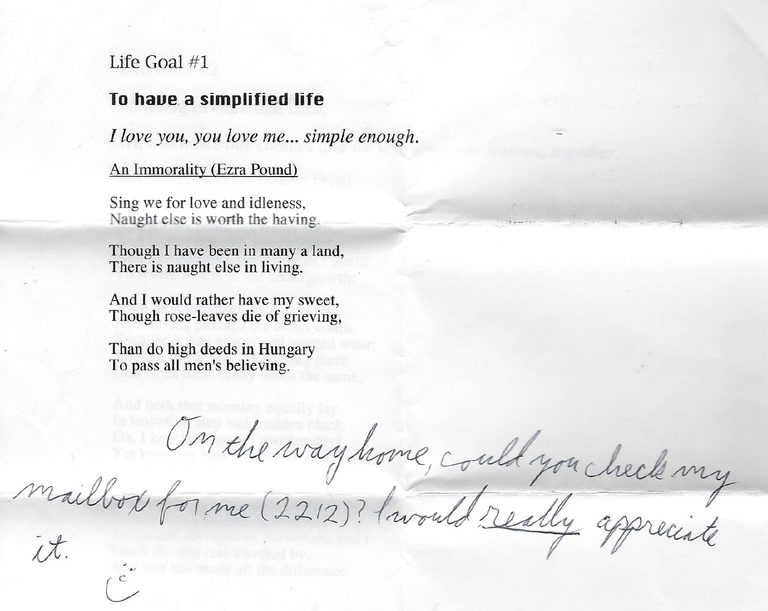 Life Goal #1
To have a simplified life
I love you, you love me... simple enough.
An Immorality (Ezra Pound)
Sing we for love and idleness,
Naught else is worth the having.
Though I have been in many a land,
There is naught else in living.
And I would rather have my sweet,
Though rose-leaves die of grieving,
Than do high deeds in Hungary
To pass all men's believing.
On the way home, could you check my
mailbox for me (2212)? I would really appreciate
it.